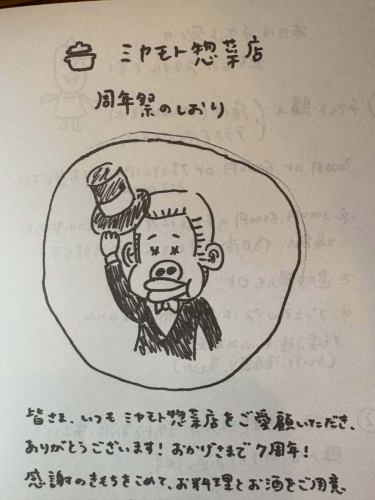 ミヤモト惣菜店
周年祭のしおり
皆さま、いつも ミヤモト惣菜店をご愛顧いただき、
ありがとうございます！おかげさまで7周年！
感謝のきもちをこめて、お料理とお酒をご用意